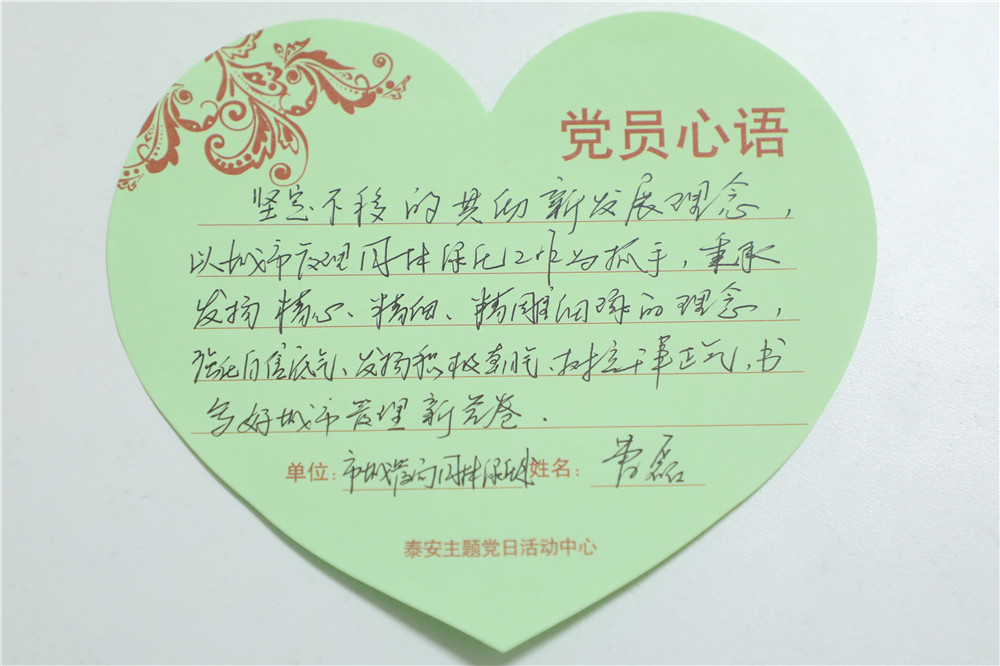 党员心语
坚定不移的贯彻新发展理念，
以城市管理园林绿化工作为抓手，秉承
发扬精心、精细、精雕细琢的理念，
强化自信底气、发扬积极朝气、树立干事正气，书
写好城市管理新答卷.
单位：市城管局园林绿化处 姓名：曹磊
泰安主题党日活动中心